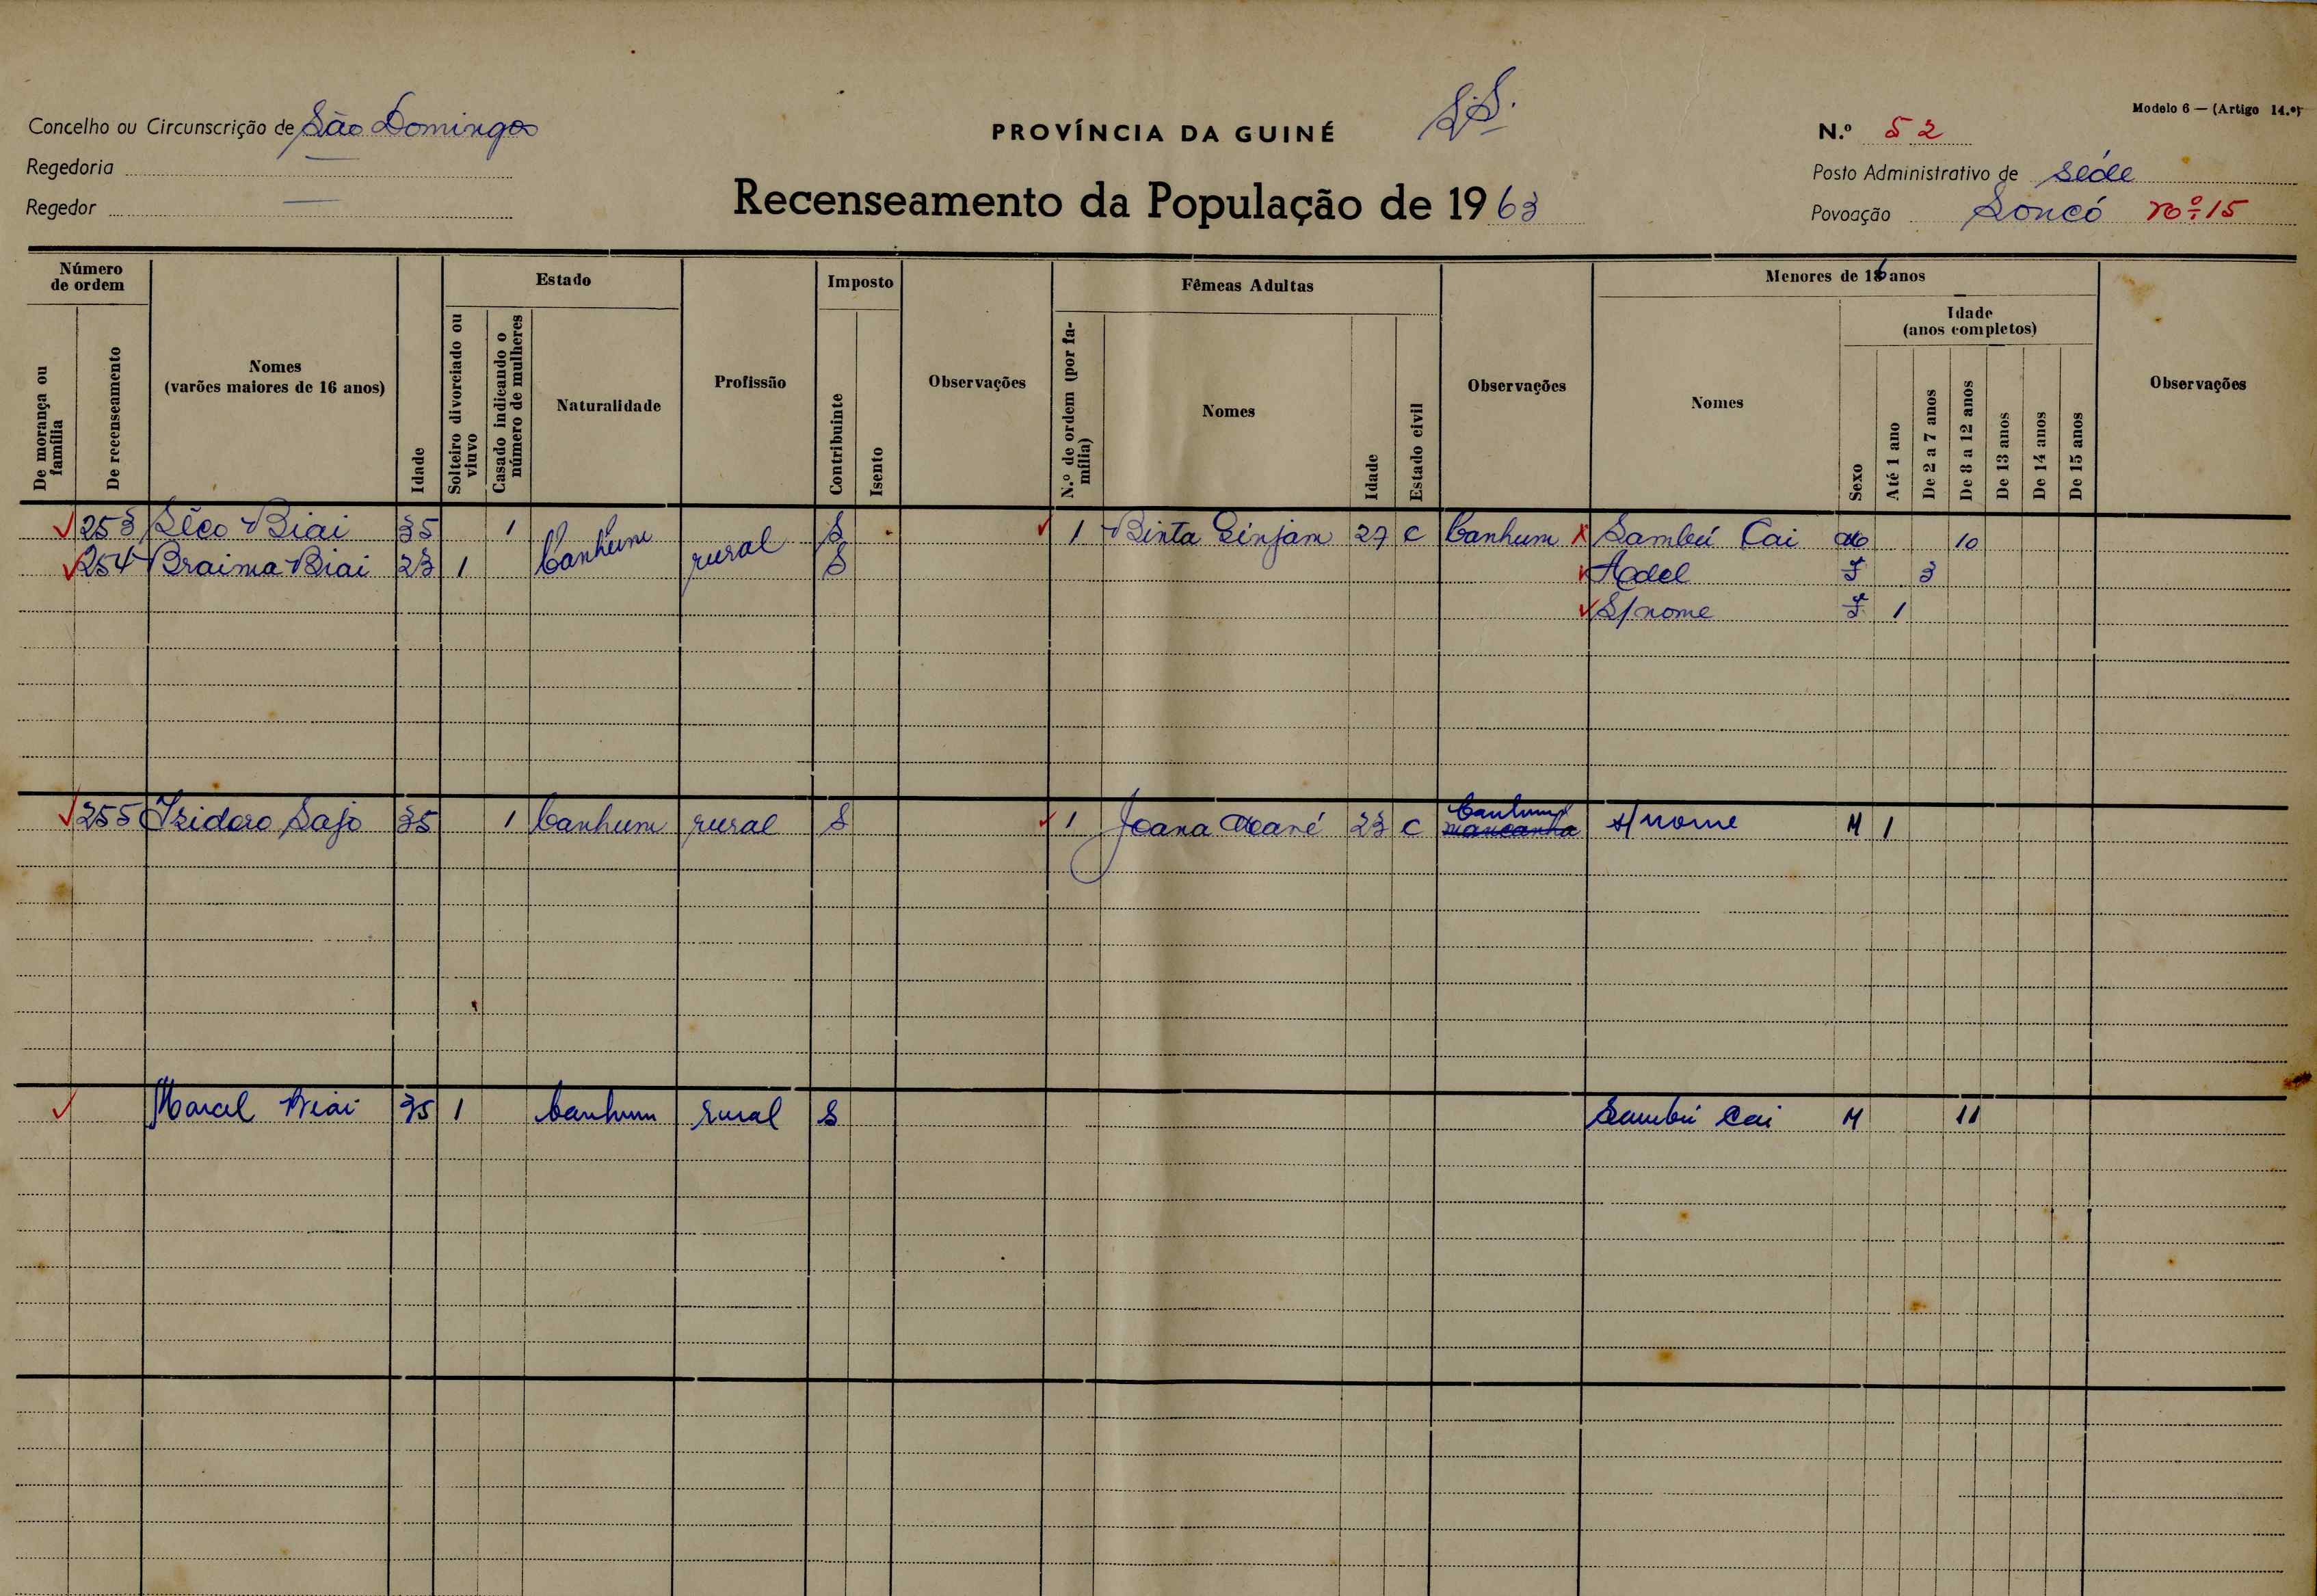 Modelo 6 — (Artigo 14.º)
Concelho ou Circunscrição de São Domingos
PROVÍNCIA DA GUINÉ
N.º 52
Regedoria —
Posto Administrativo de Séde
Regedor —
Recenseamento da População de 1963
Povoação Soncó nº 15
Número de ordem
Estado
Imposto
Fêmeas Adultas
Menores de 16 anos
De morança ou família
De recenseamento
Nomes (varões maiores de 16 anos)
Idade
Solteiro divorciado ou viuvo
Casado indicando o número de mulheres
Naturalidade
Profissão
Contribuinte
Isento
Observações
N.º de ordem (por família)
Nomes
Idade
Estado civil
Observações
Nomes
Sexo
Idade (anos completos)
Até 1 ano
De 2 a 7 anos
De 8 a 12 anos
De 13 anos
De 14 anos
De 15 anos
Observações
253 Sêco Biai 35 1 Banhum rural S 1 Binta Ginjam 27 C Banhum Sambú Cai M 10
254 Braima Biai 23 1 S Adel F 3
S/nome F 1
255 Izidoro Sajo 35 1 Banhum rural S 1 Joana Mané 23 C Banhum mancanha s/nome M 1
Marcel Biai 35 1 Banhum rural S Sambú Cai M 11